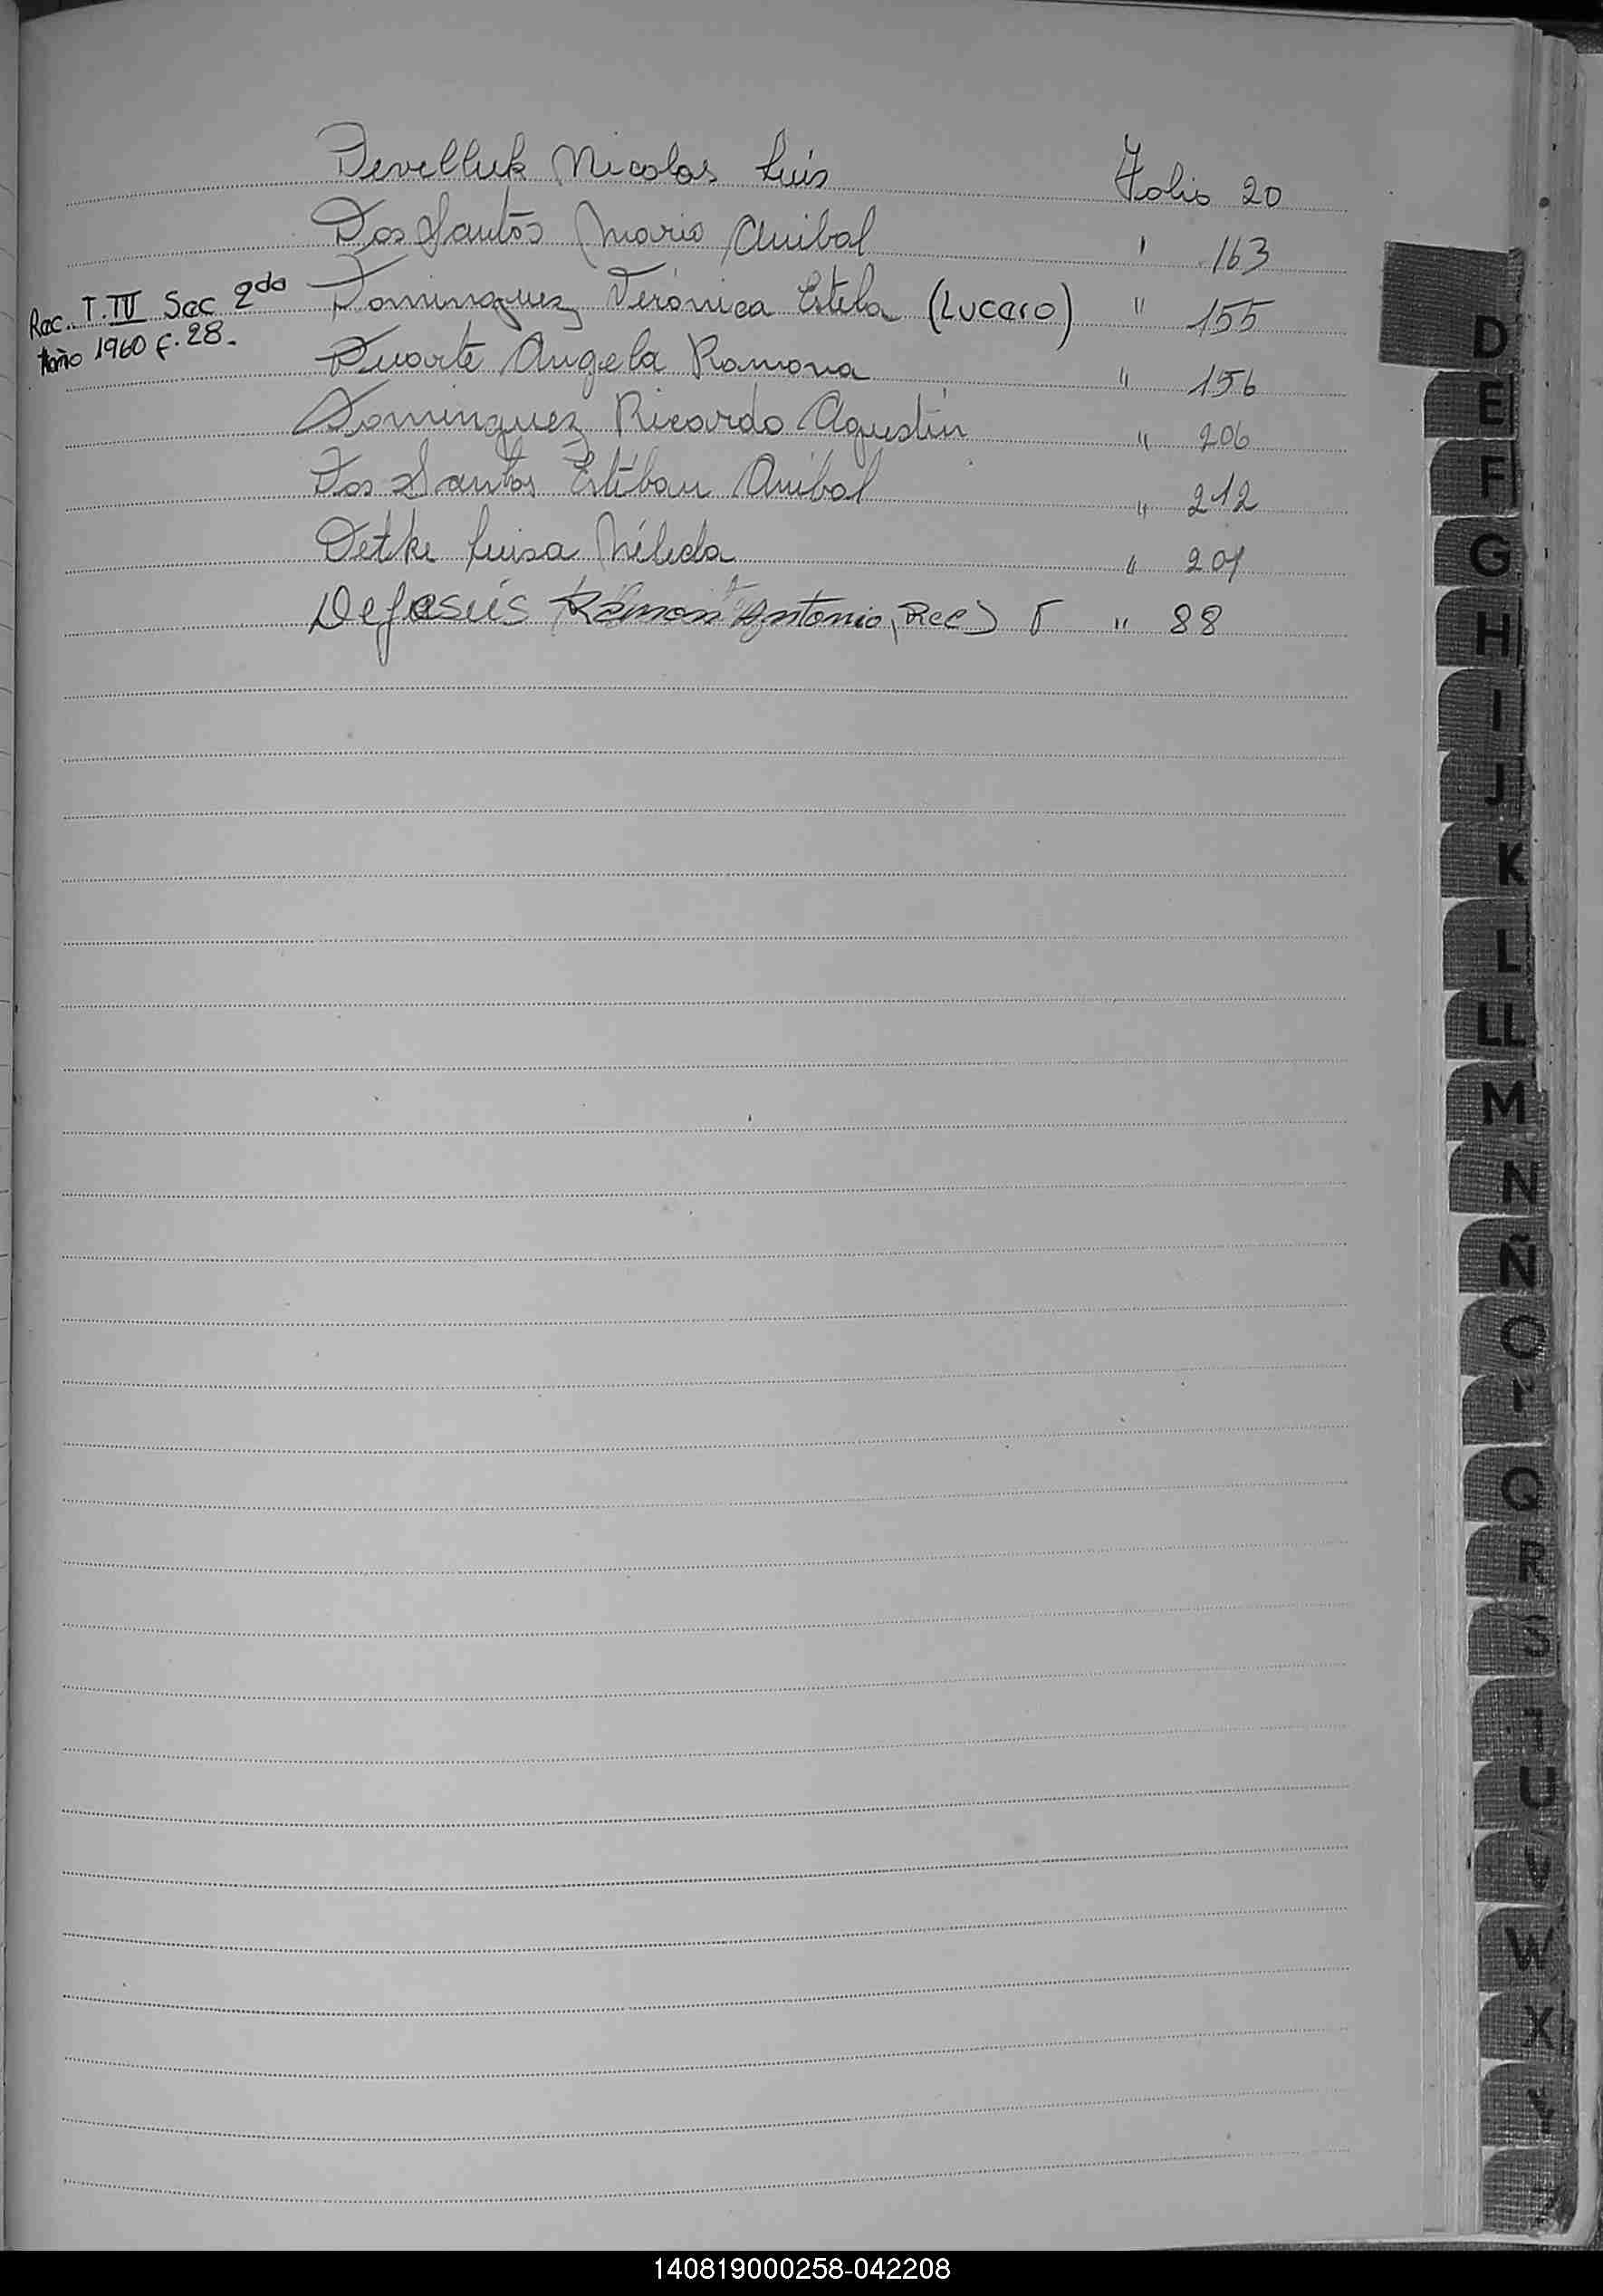 Develluk Nicolas Luis Folio 20
Dos Santos Mario Anibal " 163
Rec. T. IV Sec 2da Dominguez Verónica Estela (Lucero) " 155
Año 1960 f. 28.
Duarte Angela Ramona " 156
Dominguez Ricardo Agustín " 206
Dos Santos Estéban Anibal " 212
Detke Luisa Nélida " 201
Dejesús Ramon Antonio, Rec) " 88
D
E
F
G
H
I
J
K
L
LL
M
N
Ñ
O
Q
R
S
T
U
V
W
X
Y
140819000258-042208